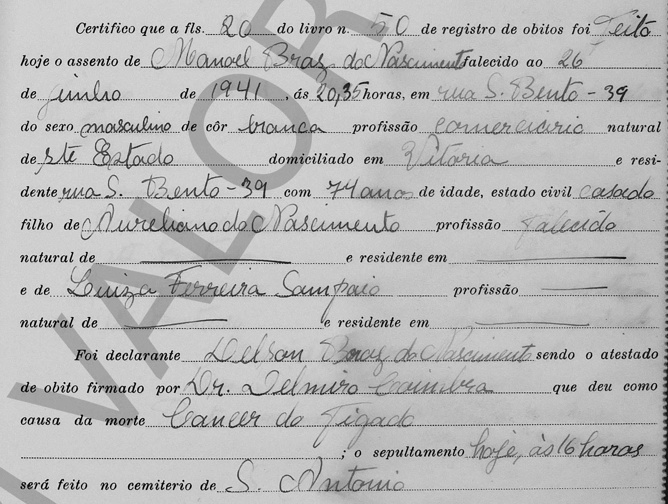 Certifico que a fls. 20 do livro n. 50 de registro de obitos foi feito
hoje o assento de Manoel Braz do Nascimento falecido ao 26
de junho de 1941, ás 20,35 horas, em rua S. Bento - 39
do sexo masculino de côr branca profissão comerciario natural
de ste Estado domiciliado em Vitoria e resi-
dente rua S. Bento - 39 com 74 anos de idade, estado civil casado
filho de Aureliano do Nascimento profissão falecido
natural de e residente em
e de Luiza Ferreira Sampaio profissão
natural de e residente em
Foi declarante Delson Braz do Nascimento sendo o atestado
de obito firmado por Dr. Delmiro Coimbra que deu como
causa da morte Cancer do Figado
; o sepultamento hoje, ás 16 horas
será feito no cemiterio de S. Antonio
VALOR